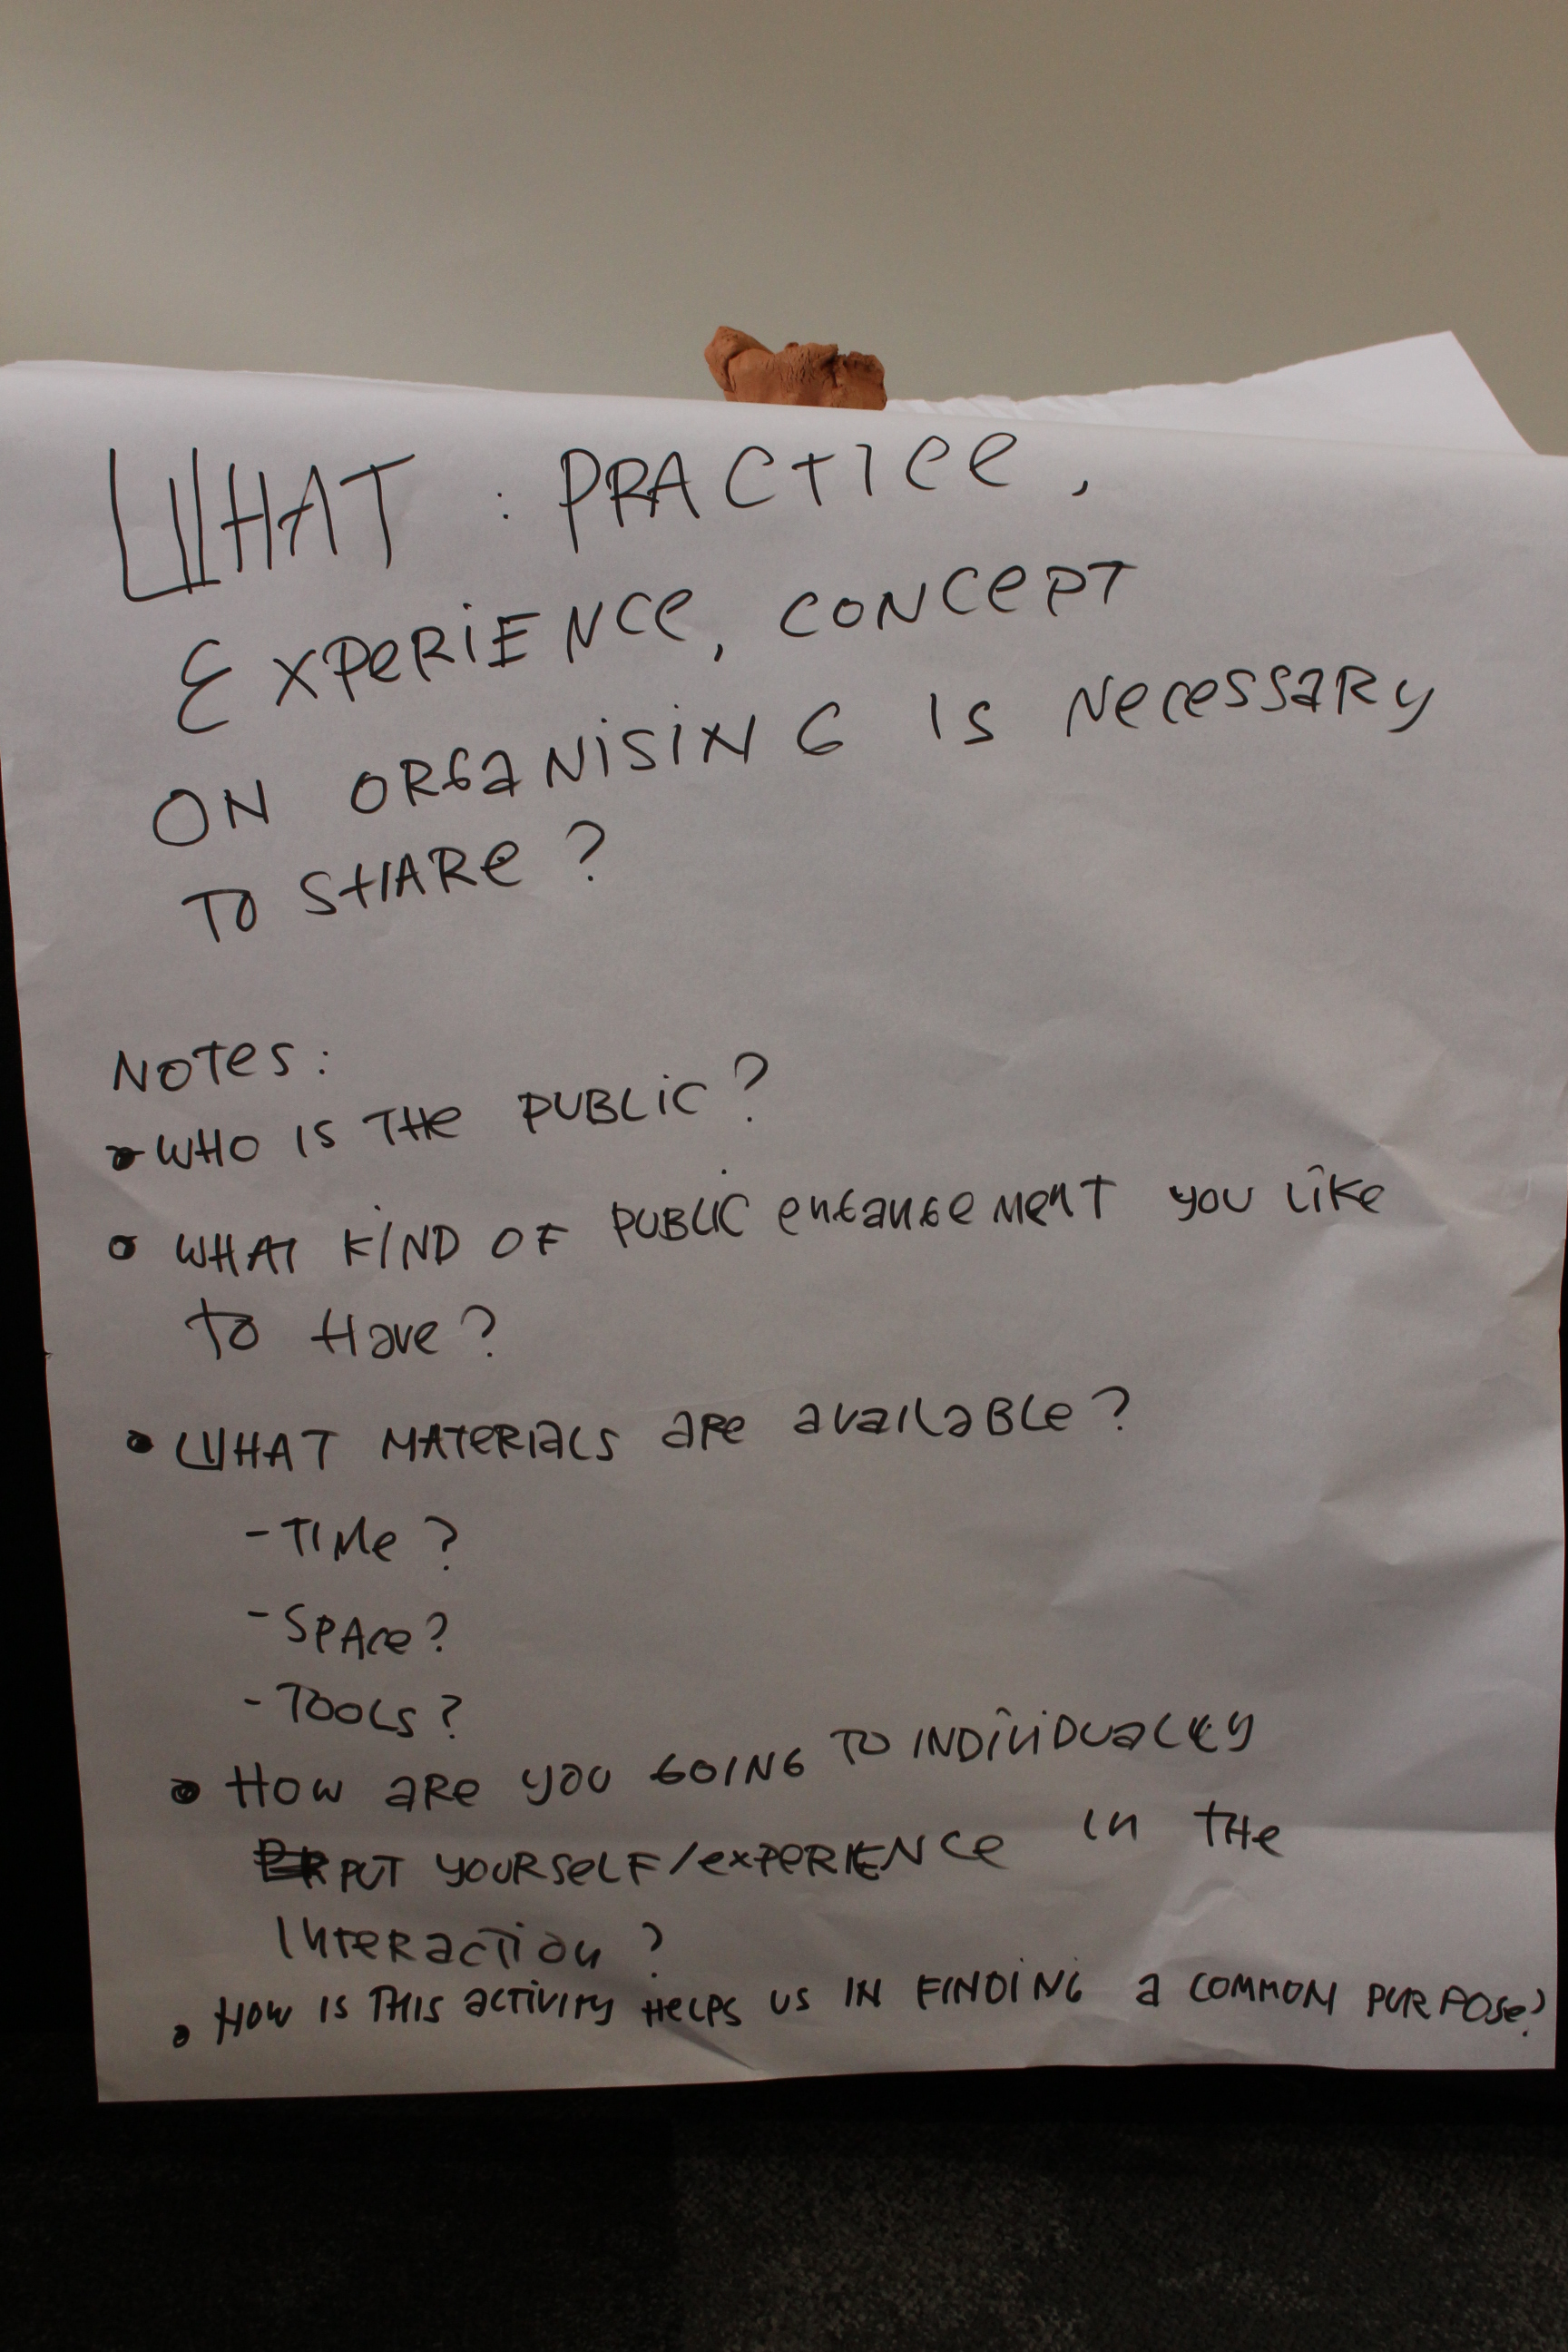 WHAT : PRACTICE,
EXPERIENCE, CONCEPT
ON ORGANISING IS NECESSARY
TO SHARE?
NOTES:
• WHO IS THE PUBLIC?
• WHAT KIND OF PUBLIC ENGANGEMENT YOU LIKE
TO HAVE?
• WHAT MATERIALS ARE AVAILABLE?
- TIME?
- SPACE?
- TOOLS?
• HOW ARE YOU GOING TO INDIVIDUALLY
PUT YOURSELF/EXPERIENCE IN THE
INTERACTION?
• HOW IS THIS ACTIVITY HELPS US IN FINDING A COMMON PURPOSE?